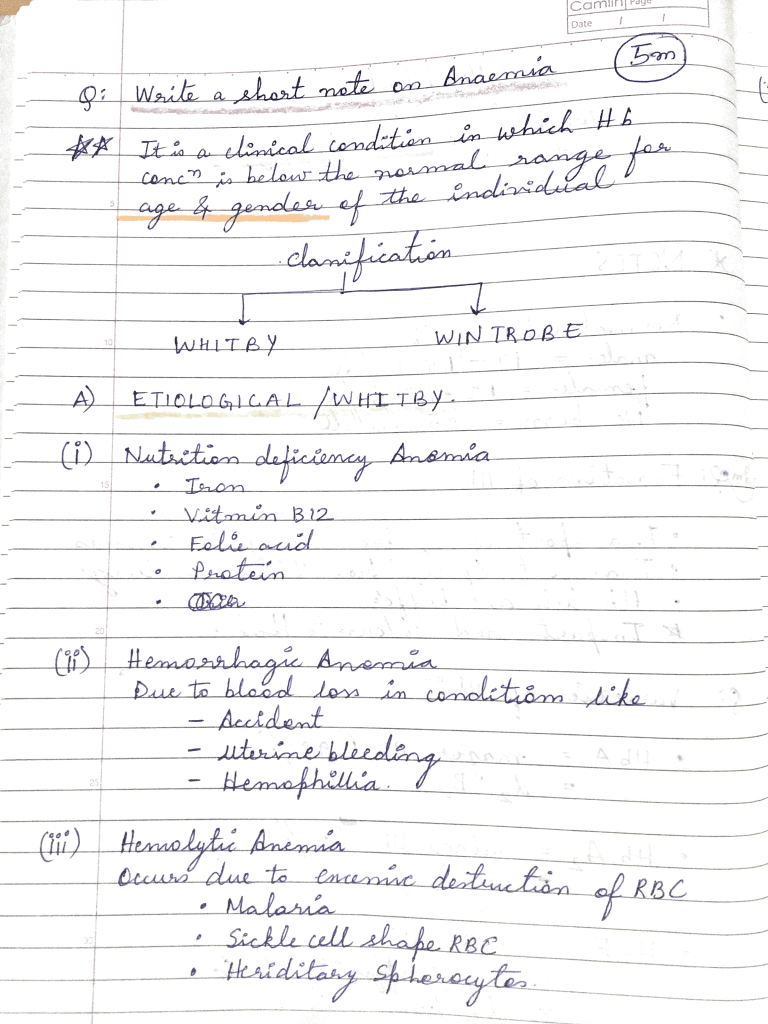 Camlin Page
Date / /
5m
Q: Write a short note on Anaemia
** It is a clinical condition in which Hb
concⁿ is below the normal range for
age & gender of the individual
classification
WHITBY WINTROBE
A) ETIOLOGICAL / WHITBY.
(i) Nutrition deficiency Anemia
• Iron
• Vitmin B12
• Folic acid
• Protein
(ii) Hemorrhagic Anemia
Due to blood loss in conditions like
– Accident
– uterine bleeding
– Hemophillia.
(iii) Hemolytic Anemia
Occurs due to excessive destruction of RBC
• Malaria
• Sickle cell shape RBC
• Heriditary Spherocytes.